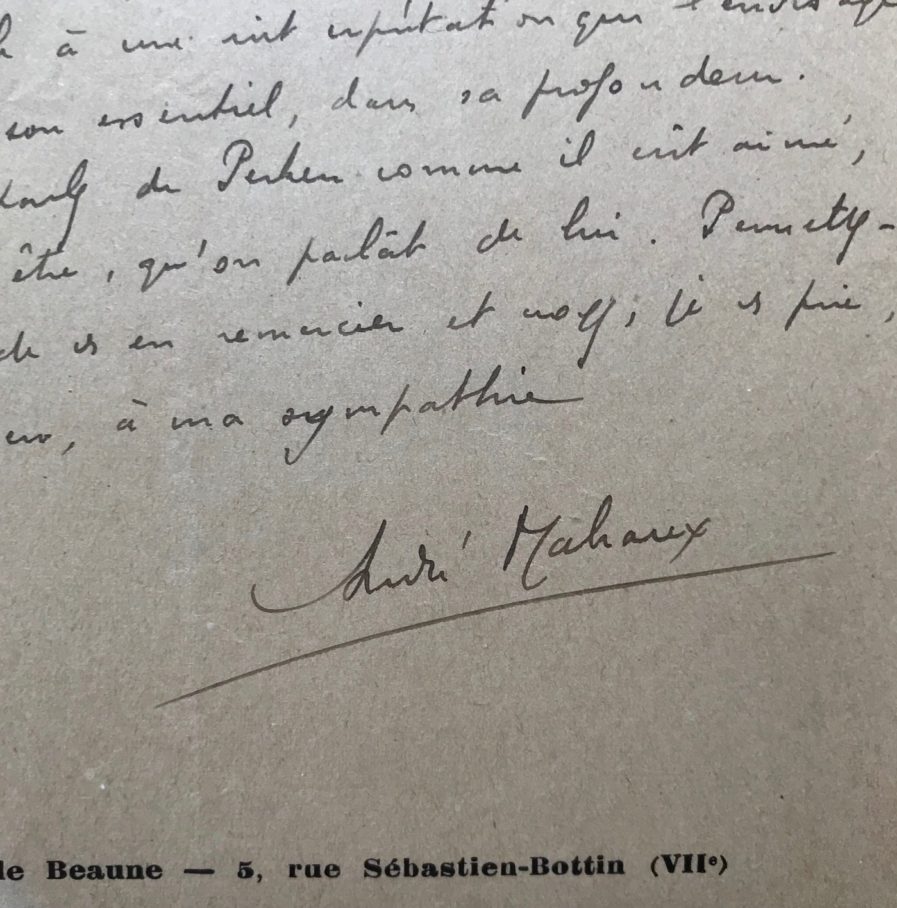 à une interprétation qui l'envisage
son essentiel, dans sa profondeur.
parlez de Perken comme il eût aimé,
être, qu'on parlât de lui. Permettez-
de vs en remercier et croyez, je vs prie,
à ma sympathie
André Malraux
de Beaune — 5, rue Sébastien-Bottin (VIIᵉ)